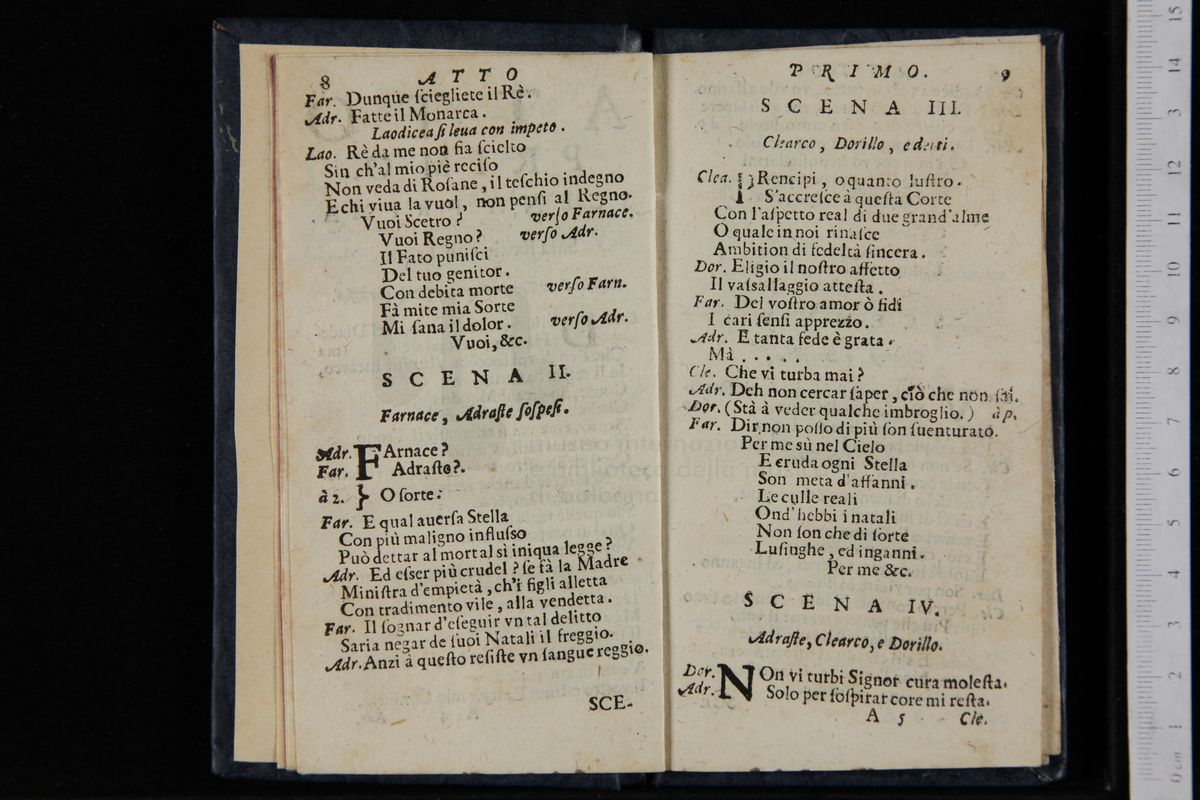 8 ATTO
Far. Dunque ſciegliete il Rè.
Adr. Fatte il Monarca.
Laodicea ſi leua con impeto.
Lao. Rè da me non fia ſcielto
Sin ch'al mio piè reciſo
Non veda di Roſane, il teſchio indegno
E chi viua la vuol, non penſi al Regno.
Vuoi Scetro? verſo Farnace.
Vuoi Regno? verſo Adr.
Il Fato puniſci
Del tuo genitor.
Con debita morte verſo Farn.
Fà mite mia Sorte
Mi ſana il dolor. verſo Adr.
Vuoi, &c.
SCENA II.
Farnace, Adraſte ſoſpeſi.
Adr. FArnace?
Far. Adraſte?.
à 2. } O ſorte:
Far. E qual auerſa Stella
Con più maligno influſso
Può dettar al mortal sì iniqua legge?
Adr. Ed eſser più crudel? ſe fà la Madre
Miniſtra d'empietà, ch'i figli alletta
Con tradimento vile, alla vendetta.
Far. Il ſognar d'eſeguir vn tal delitto
Saria negar de ſuoi Natali il freggio.
Adr. Anzi à queſto reſiſte vn ſangue reggio.
SCE-
PRIMO. 9
SCENA III.
Clearco, Dorillo, e detti.
Clea. PRencipi, o quanto luſtro.
S'accreſce à queſta Corte
Con l'aſpetto real di due grand'alme
O quale in noi rinaſce
Ambition di fedeltà ſincera.
Dor. Eligio il noſtro affetto
Il vaſsallaggio atteſta.
Far. Del voſtro amor ò fidi
I cari ſenſi apprezzo.
Adr. E tanta fede è grata.
Mà . . . . .
Cle. Che vi turba mai?
Adr. Deh non cercar ſaper, ciò che non ſai.
Dor. (Stà à veder qualche imbroglio.) à p.
Far. Dir non poſſo di più ſon ſuenturato.
Per me sù nel Cielo
E cruda ogni Stella
Son meta d'affanni.
Le culle reali
Ond'hebbi i natali
Non ſon che di ſorte
Luſinghe, ed inganni.
Per me &c.
SCENA IV.
Adraſte, Clearco, e Dorillo.
Dor. NOn vi turbi Signor cura moleſta.
Adr. Solo per ſoſpirar core mi reſta.
A 5 Cle.
museo internazionale
biblioteca della musica
di bologna
15
14
13
12
11
10
9
8
7
6
5
4
3
2
1
0 cm